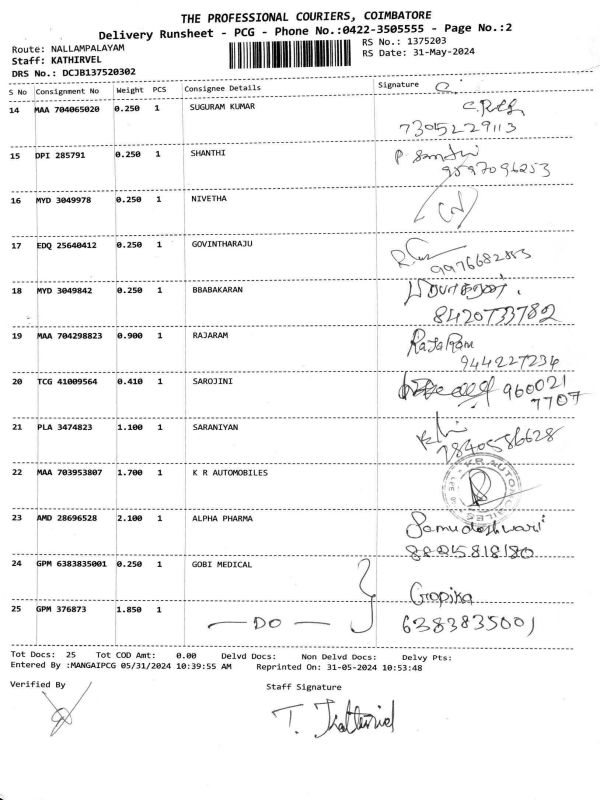 THE PROFESSIONAL COURIERS, COIMBATORE
Delivery Runsheet - PCG - Phone No.:0422-3505555 - Page No.:2
Route: NALLAMPALAYAM RS No.: 1375203
Staff: KATHIRVEL RS Date: 31-May-2024
DRS No.: DCJB137520302
S No Consignment No Weight PCS Consignee Details Signature
14 MAA 704065020 0.250 1 SUGURAM KUMAR
7305229113
15 DPI 285791 0.250 1 SHANTHI P.
9597096253
16 MYD 3049978 0.250 1 NIVETHA
17 EDQ 25640412 0.250 1 GOVINTHARAJU
9976682853
18 MYD 3049842 0.250 1 BBABAKARAN
8420733782
19 MAA 704298823 0.900 1 RAJARAM RajaRam
944227234
20 TCG 41009564 0.410 1 SAROJINI 960021
7707
21 PLA 3474823 1.100 1 SARANIYAN
22 MAA 703953807 1.700 1 K R AUTOMOBILES KR AUTOMOBILES
23 AMD 28696528 2.100 1 ALPHA PHARMA
24 GPM 6383835001 0.250 1 GOBI MEDICAL
Gopika
25 GPM 376873 1.850 1 — DO — 6383835001
Tot Docs: 25 Tot COD Amt: 0.00 Delvd Docs: Non Delvd Docs: Delvy Pts:
Entered By :MANGAIPCG 05/31/2024 10:39:55 AM Reprinted On: 31-05-2024 10:53:48
Verified By Staff Signature